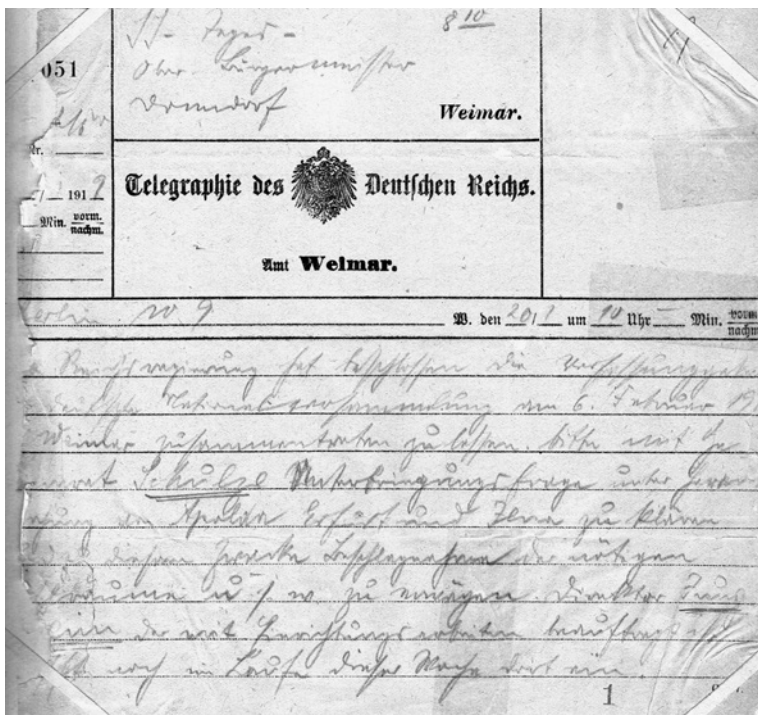 8 10
Ober-Bürgermeister
051
Donndorf
Weimar.
191 9
Telegraphie des Deutschen Reichs.
Min. vorm. nachm.
Amt Weimar.
Berlin W 9
W. den 20/1 um 10 Uhr — Min. vorm. nachm.
Reichsregierung hat beschlossen die
deutsche Nationalversammlung am 6. Februar
Weimar zusammentreten zu lassen. bitte mit
Schulze Unterbringungsfrage unter
von Apolda Erfurt und Jena zu klären
diesem Zwecke Beschlagnahme der nötigen
räume u s w. zu erwägen. Direktor
der mit Einrichtungsarbeiten beauftragt
noch im Laufe dieser Woche dort ein.
1